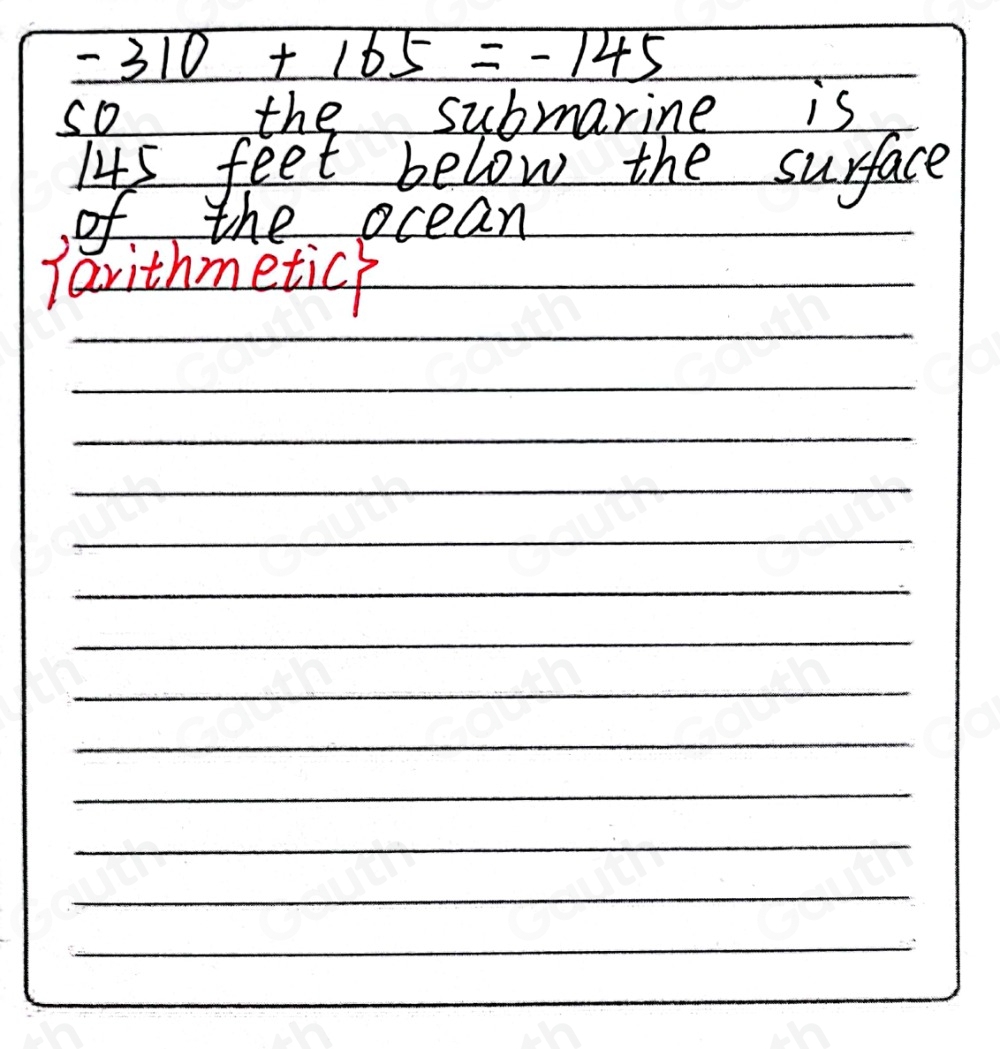 -310 + 165 = -145
so the submarine is
145 feet below the surface
of the ocean
{arithmetic}